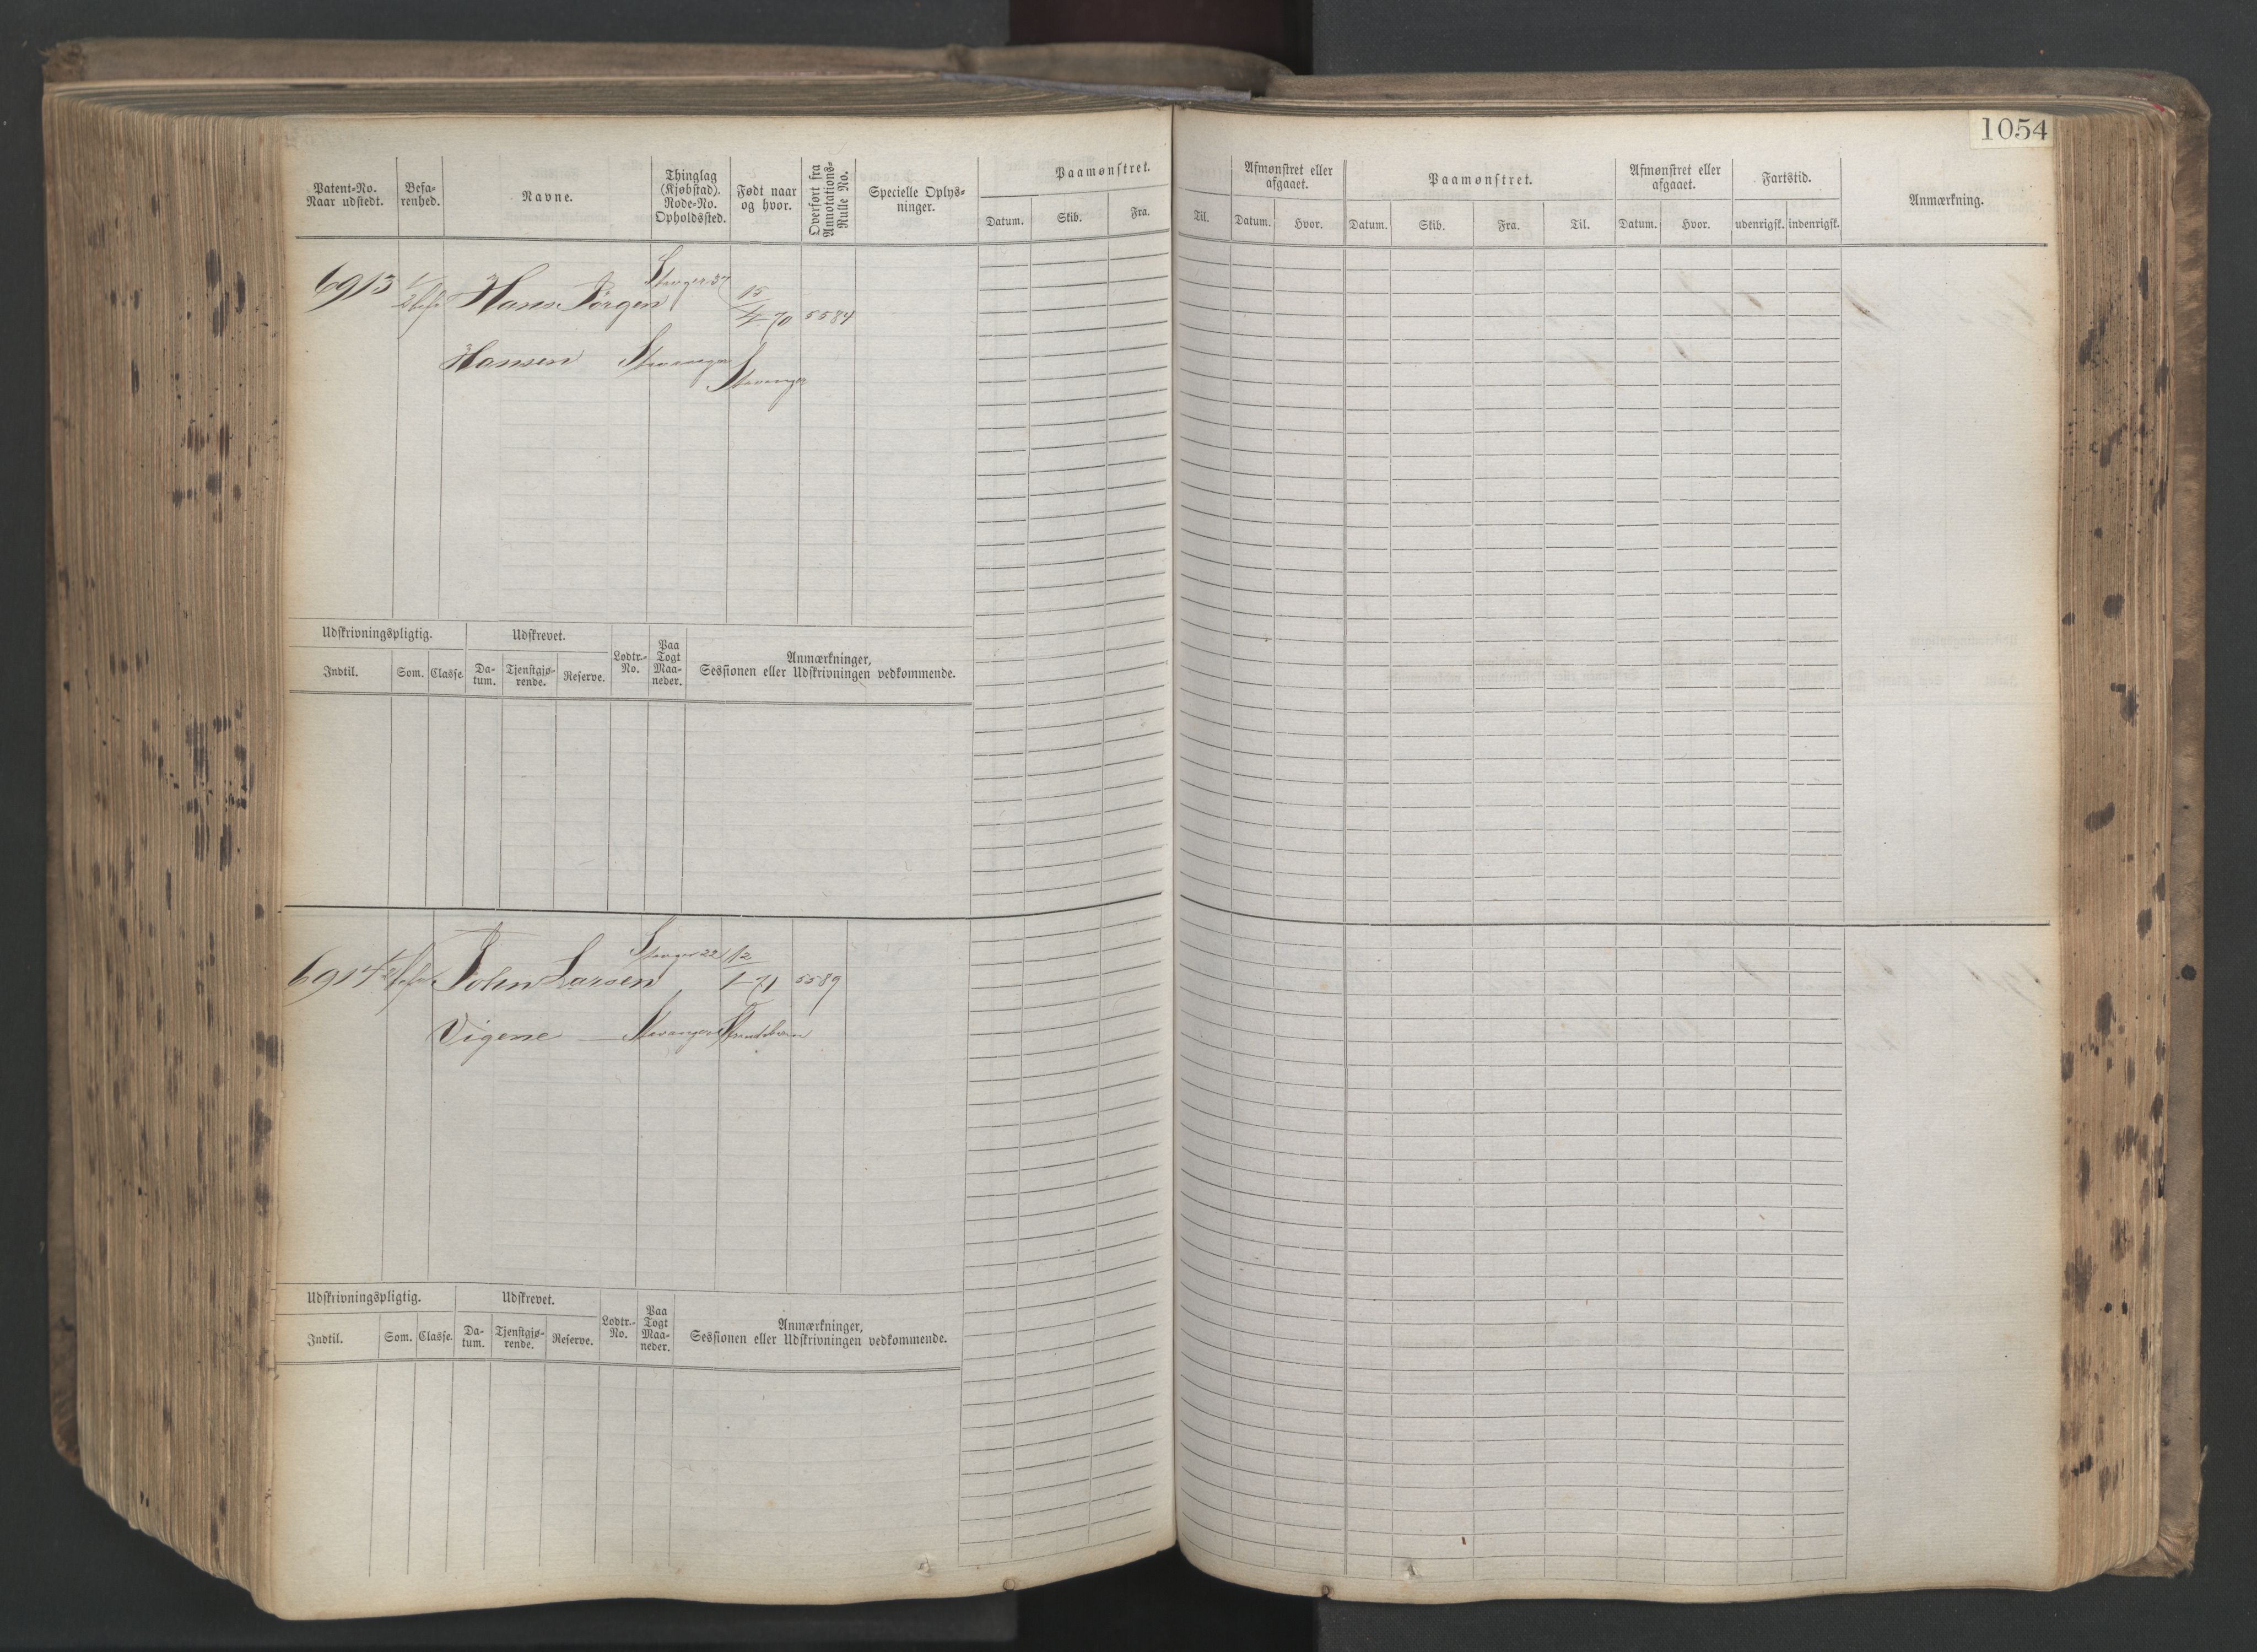 1054
Patent-No.
Naar udstedt.
Befa-
renhed.
Navne.
Thinglag
(Kjøbstad).
Rode-No.
Opholdssted.
Født naar
og hvor.
Overført fra
Annotations-
Rulle No.
Specielle Oplys-
ninger.
Paamønstret.
Datum. Skib. Fra.
Til.
Afmønstret eller
afgaaet.
Datum. Hvor.
Paamønstret.
Datum. Skib. Fra. Til.
Afmønstret eller
afgaaet.
Datum. Hvor.
Fartstid.
udenrigsk. indenrigsk.
Anmærkning.
6913 Hans Jörgen 37 15 70 5584
Hansen Stavanger Stavanger
Udskrivningspligtig. Udskrevet. Lodtr.-
No. Paa
Togt
Maa-
neder. Anmærkninger,
Sessionen eller Udskrivningen vedkommende.
Indtil. Som. Classe. Da-
tum. Tjenstgjø-
rende. Reserve.
6914 John Larsen 22 12 71 5589
Vigene Stavanger
Udskrivningspligtig. Udskrevet. Lodtr.-
No. Paa
Togt
Maa-
neder. Anmærkninger,
Sessionen eller Udskrivningen vedkommende.
Indtil. Som. Classe. Da-
tum. Tjenstgjø-
rende. Reserve.